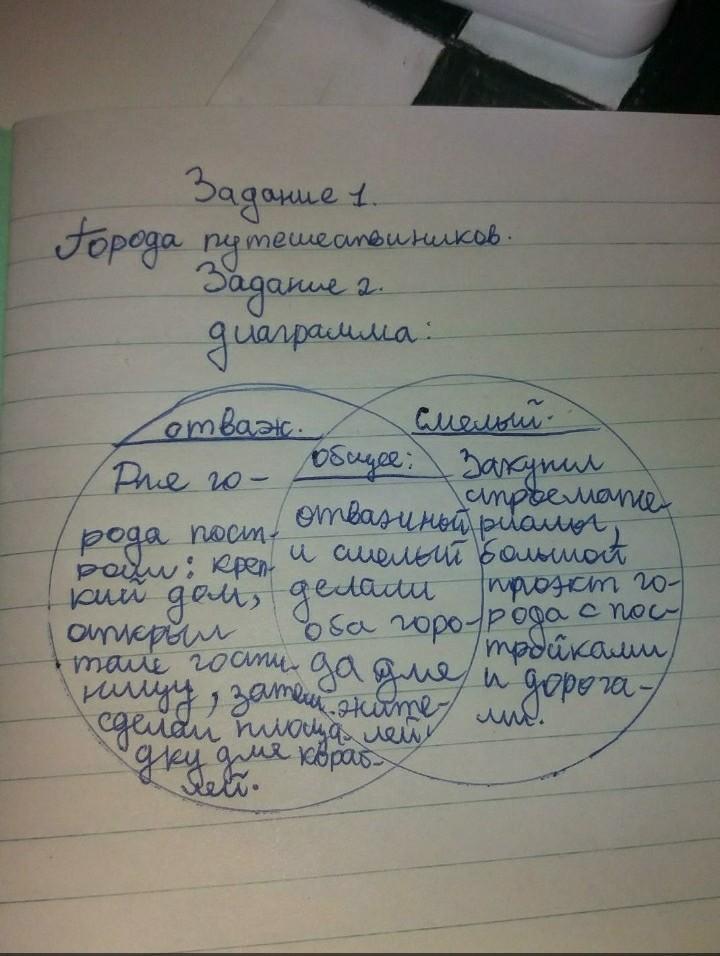 Задание 1.
Города путешествиников.
Задание 2.
диаграмма:
отваж.
Для го-
рода пост-
роил: креп-
кий дом,
открыл
там гости-
ницу, затем
сделал площа-
дку для кораб-
лей.
общее:
отважный
и смелый
делали
оба горо-
да для
жите-
лей
смелый.
Закупил
строемате-
риалы,
большой
проэкт го-
рода с пос-
тройками
и дорога-
ми.